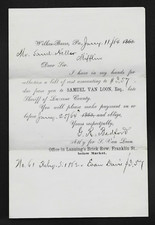 Wilkes-Barre, Pa Jany. 11/64
Mr
Sir
I have in my hands for
collection a bill of cost amounting to $ 2.57
due you to SAMUEL VAN LOON, Esq., late
Sheriff of Luzerne County.
You will please make payment on or
before Jany. 25/64 and oblige,
Yours respectfully,
G. R. Bedford
Att'y for S. Van Loon
Office in Lanning's Brick Row, Franklin St.
below Market.
No. 61 Evan Davis $ 2.57